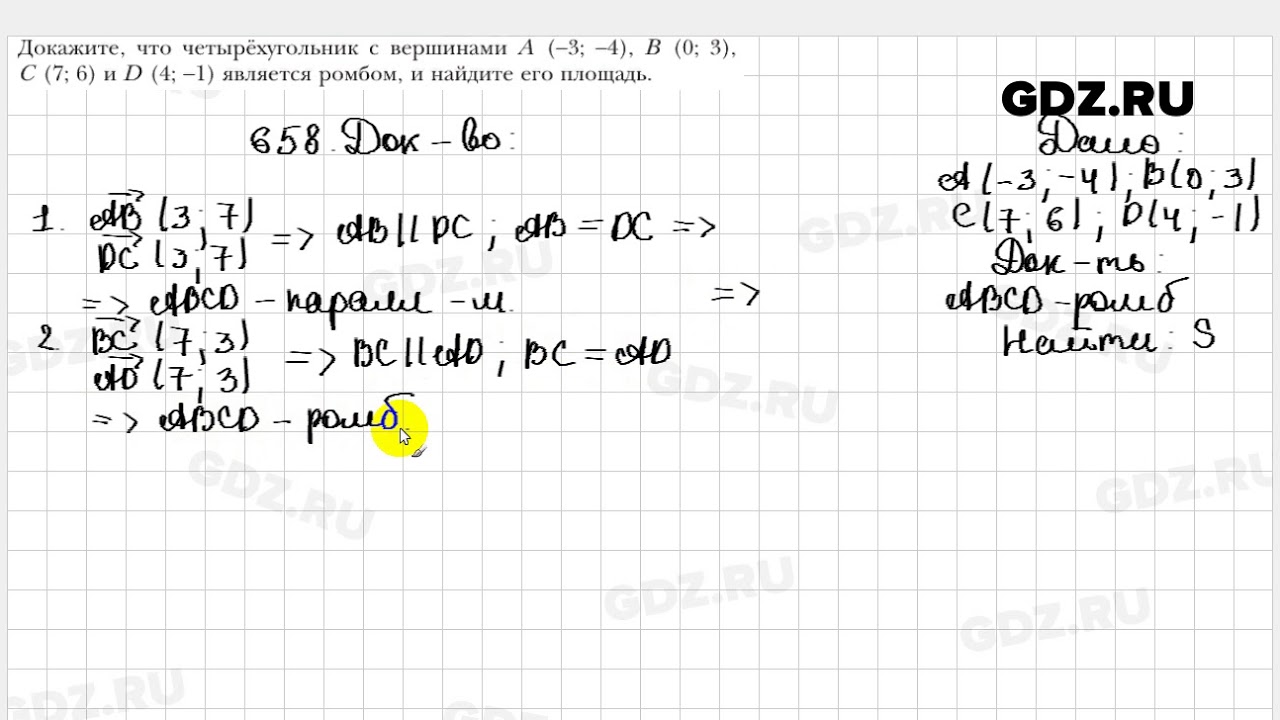 Докажите, что четырёхугольник с вершинами A (–3; –4), B (0; 3),
C (7; 6) и D (4; –1) является ромбом, и найдите его площадь.
GDZ.RU
658. Док-во:
Дано:
A(-3;-4); B(0;3)
C(7;6); D(4;-1)
Док-ть:
ABCD-ромб
Найти: S
1. AB (3;7)
DC (3;7)
=> AB || DC; AB = DC =>
=> ABCD - паралл-м.
=>
2. BC (7;3)
AD (7;3)
=> BC || AD; BC = AD
=> ABCD - ромб
GDZ.RU
GDZ.RU
GDZ.RU
GDZ.RU
GDZ.RU
GDZ.RU
GDZ.RU
GDZ.RU
GDZ.RU